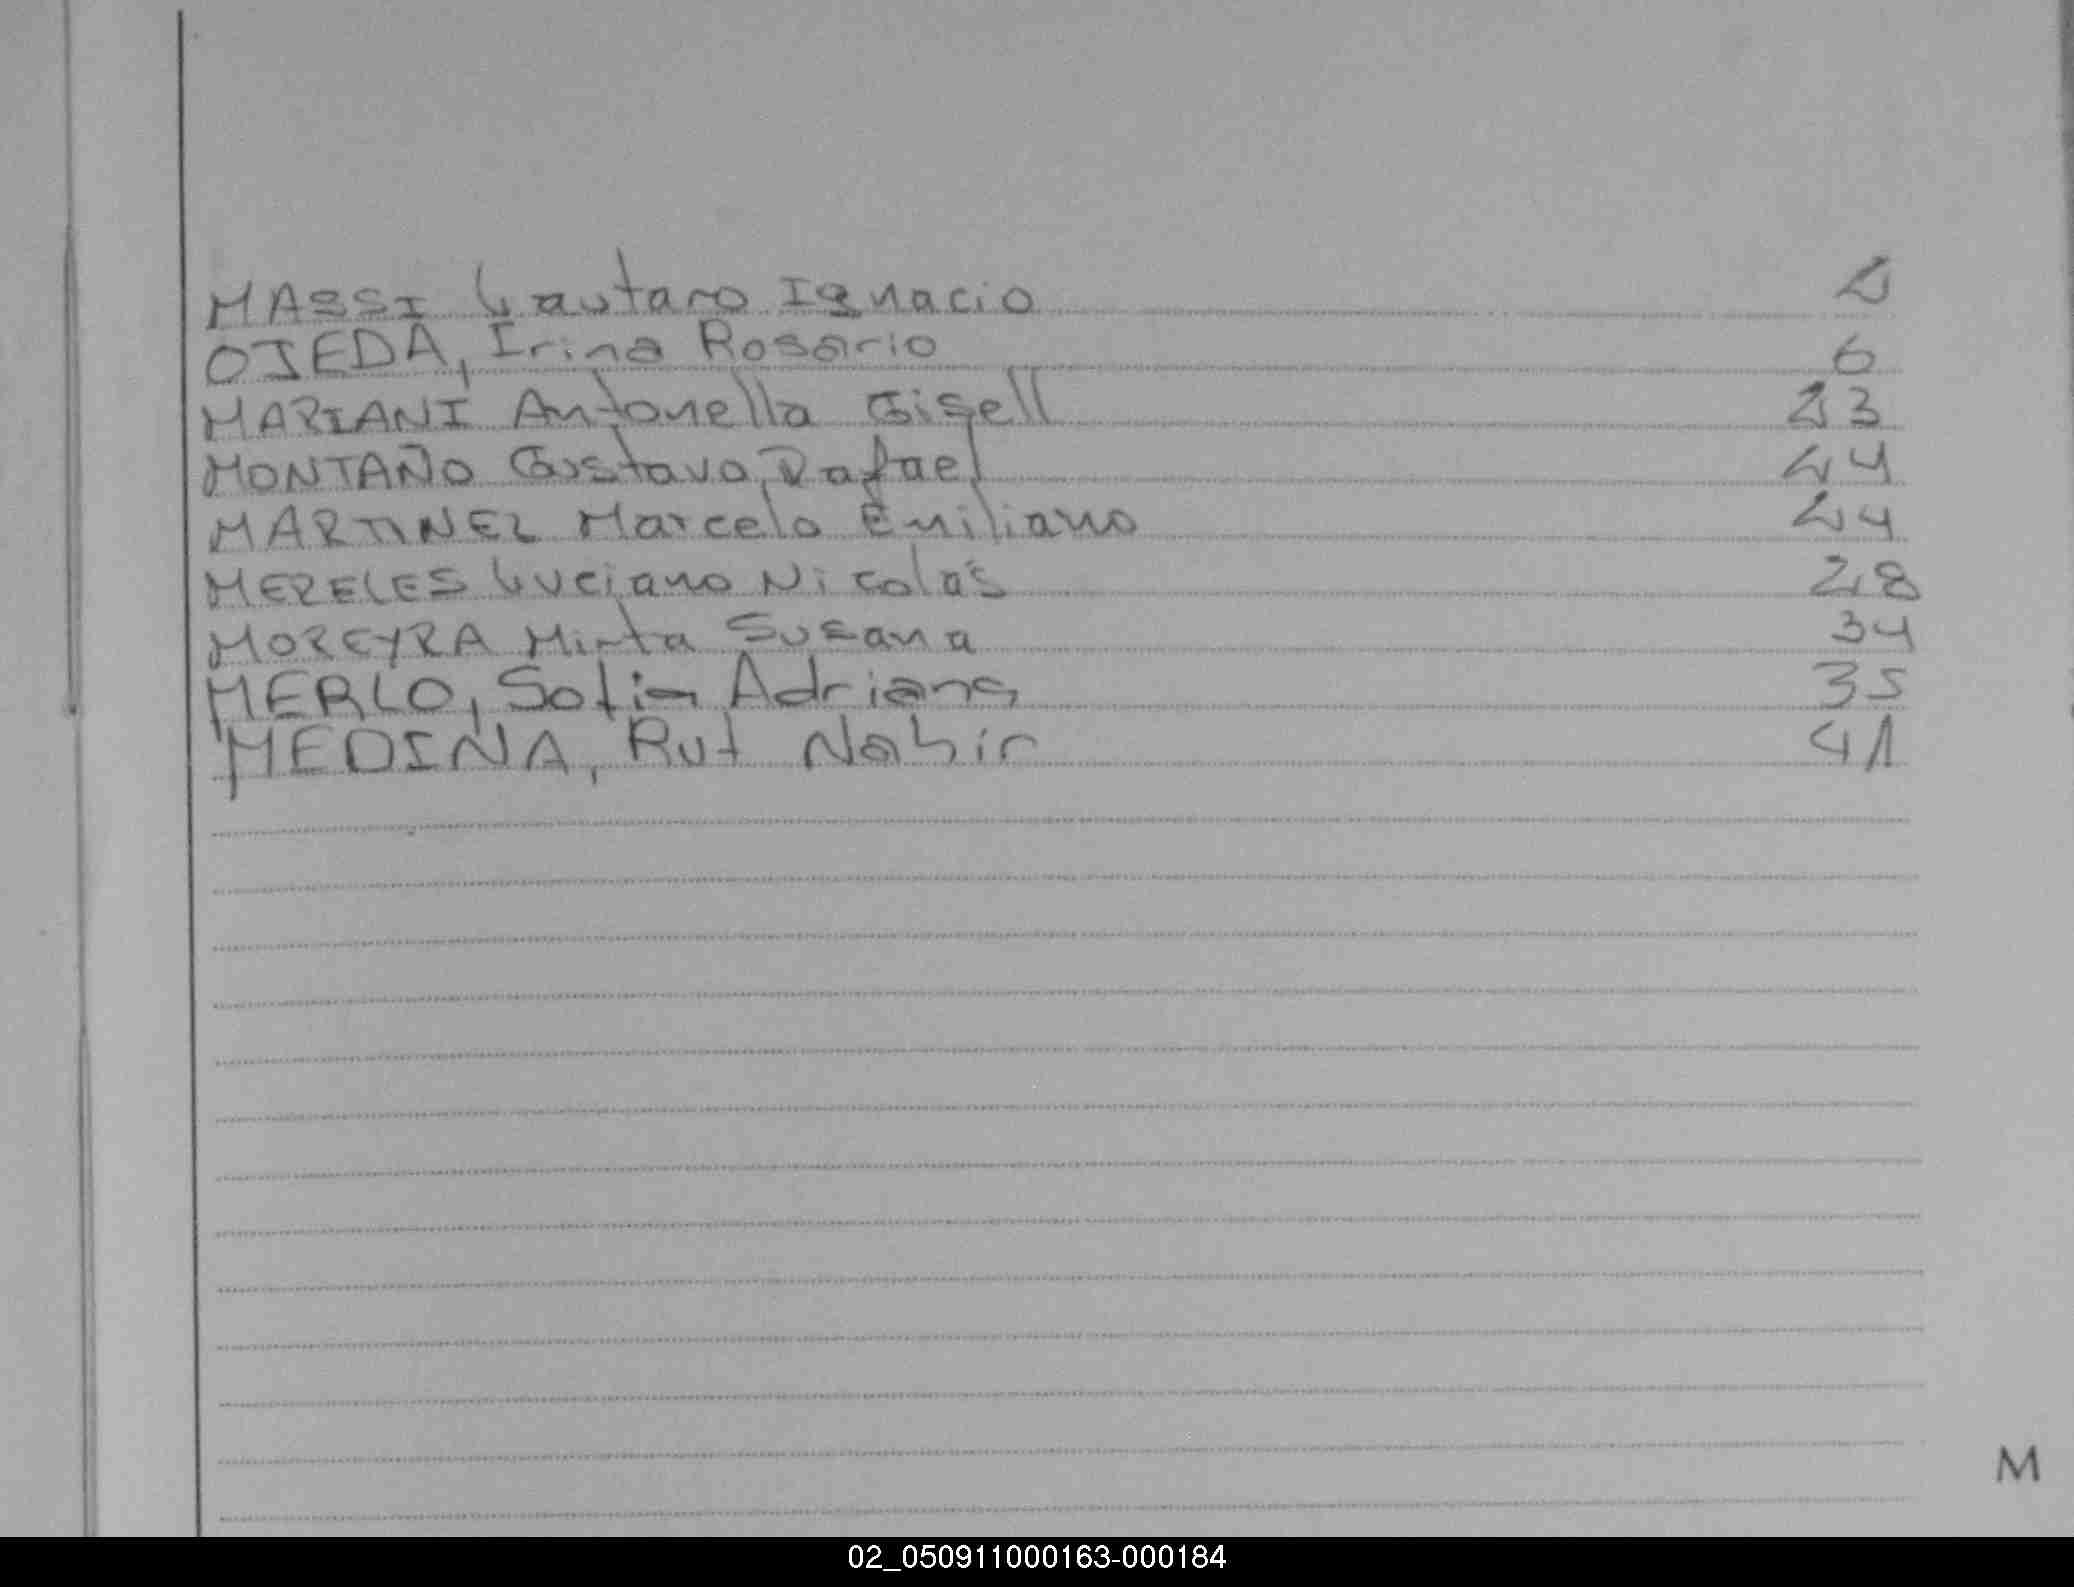 MASSI Lautaro Ignacio 2
OJEDA, Irina Rosario 6
MARIANI Antonella Gisell 23
MONTAÑO Gustavo Rafael 24
MARTINEZ Marcelo Emiliano 24
MERELES Luciano Nicolás 28
MOREYRA Mirta Susana 34
MERLO, Sofia Adriana 35
MEDINA, Rut Nahir 41
M
02_050911000163-000184